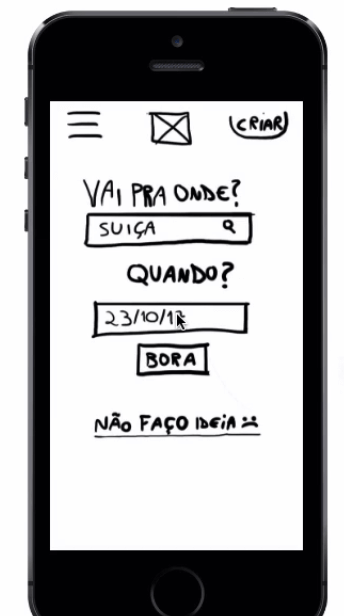 CRIAR
VAI PRA ONDE?
SUIÇA
QUANDO?
23/10/1
BORA
NÃO FAÇO IDEIA :(